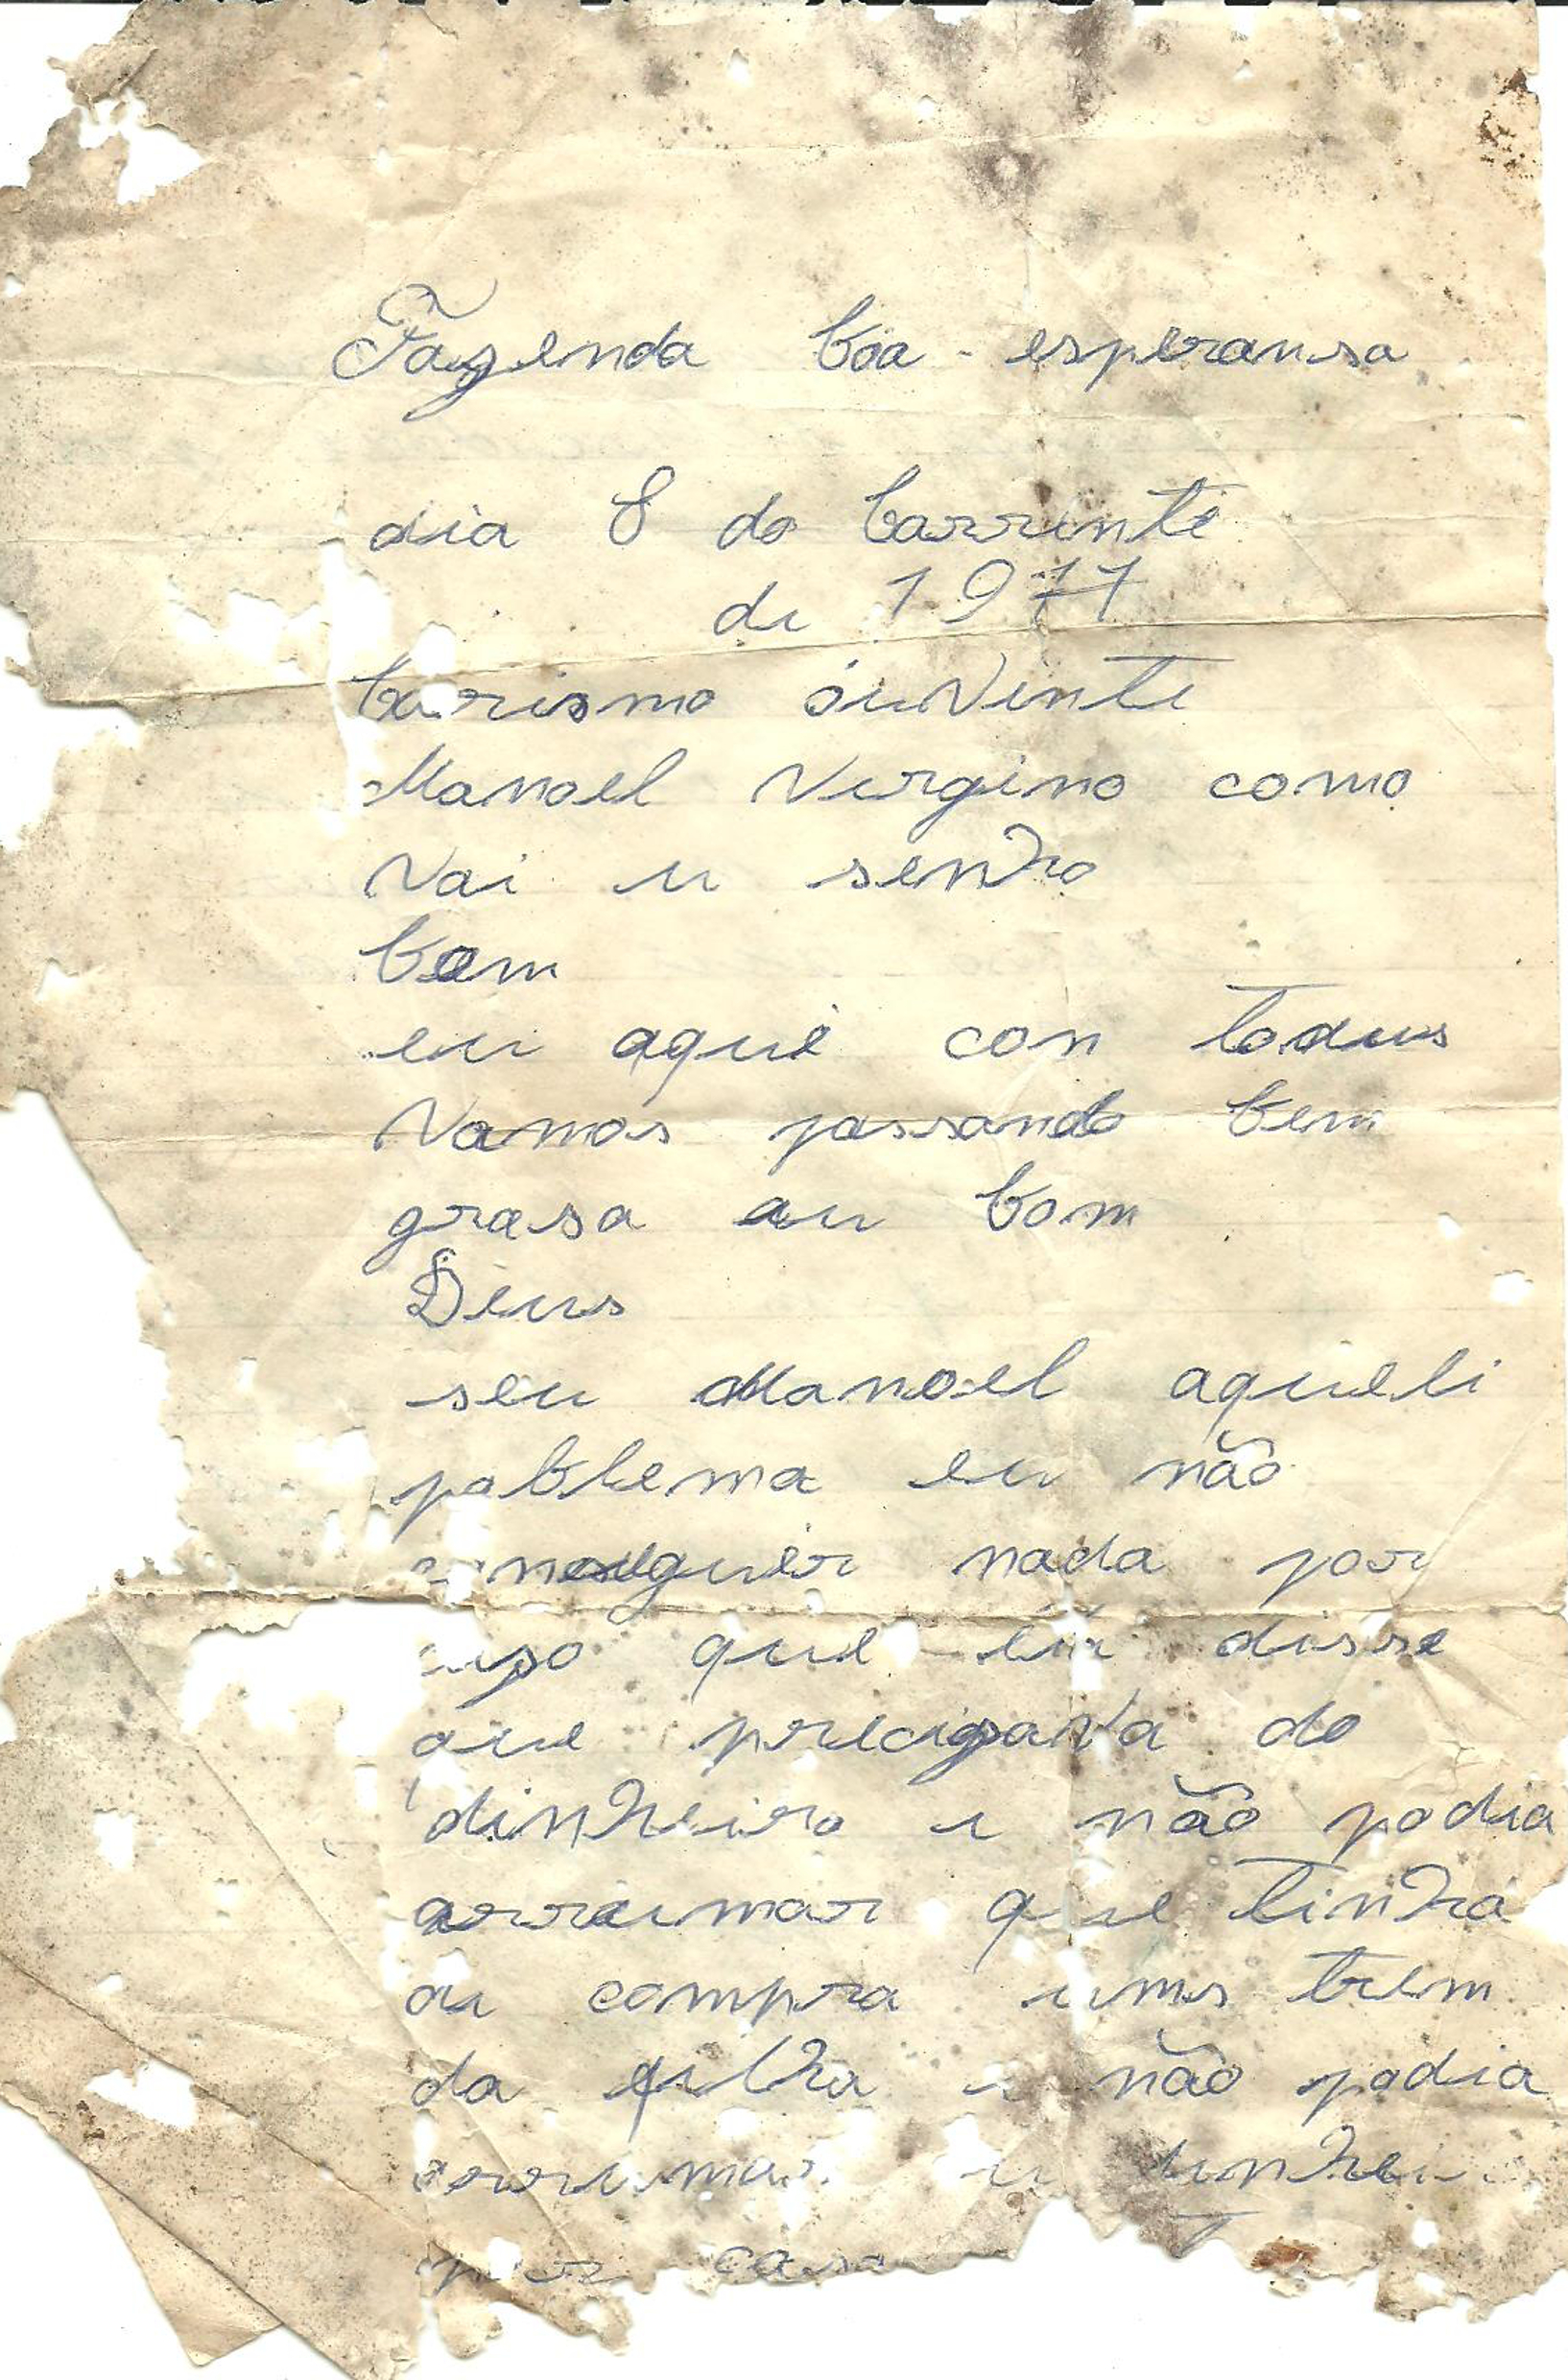 Fazenda boa-esperansa
dia 8 do Carrente
de 1977
Carismo ouvinte
Manoel Vergino como
vai u senho
bem
eu aqui con todus
vamos passando bem
grasa au bom
Deus
seu Manoel aqueli
poblema eu não
nada por
que eu disse
que precisava do
dinheiro i não podia
arrumar que tinha
di compra ums trem
da filha i não podia
arrumar u
por causa